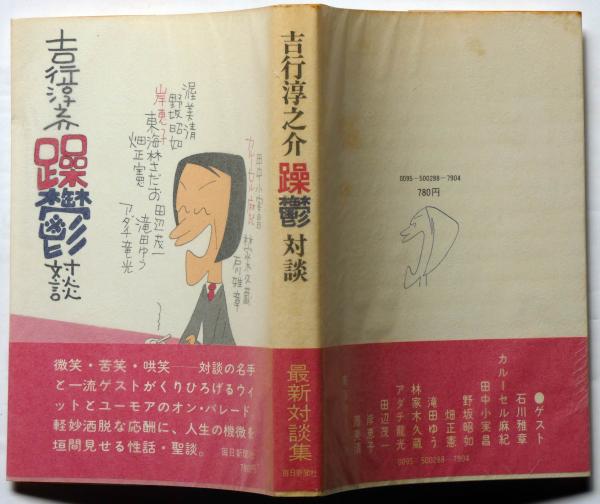 吉行淳之介
躁鬱
対談
渥美清
野坂昭如
岸恵子
東海林さだお
畑正憲
田辺茂一
滝田ゆう
アダチ竜光
田中小実昌
カルーセル麻紀
林家木久蔵
石川雅章
微笑・苦笑・哄笑──対談の名手
と一流ゲストがくりひろげるウィ
ットとユーモアのオン・パレード
軽妙洒脱な応酬に、人生の機微を
垣間見せる性話・聖談。
毎日新聞社
780円
吉行淳之介 躁鬱対談
最新対談集
毎日新聞社
0095-500288-7904
780円
●ゲスト
石川雅章
カルーセル麻紀
田中小実昌
野坂昭如
畑正憲
滝田ゆう
林家木久蔵
アダチ龍光
田辺茂一
岸恵子
渥美清
0095-500288-7904